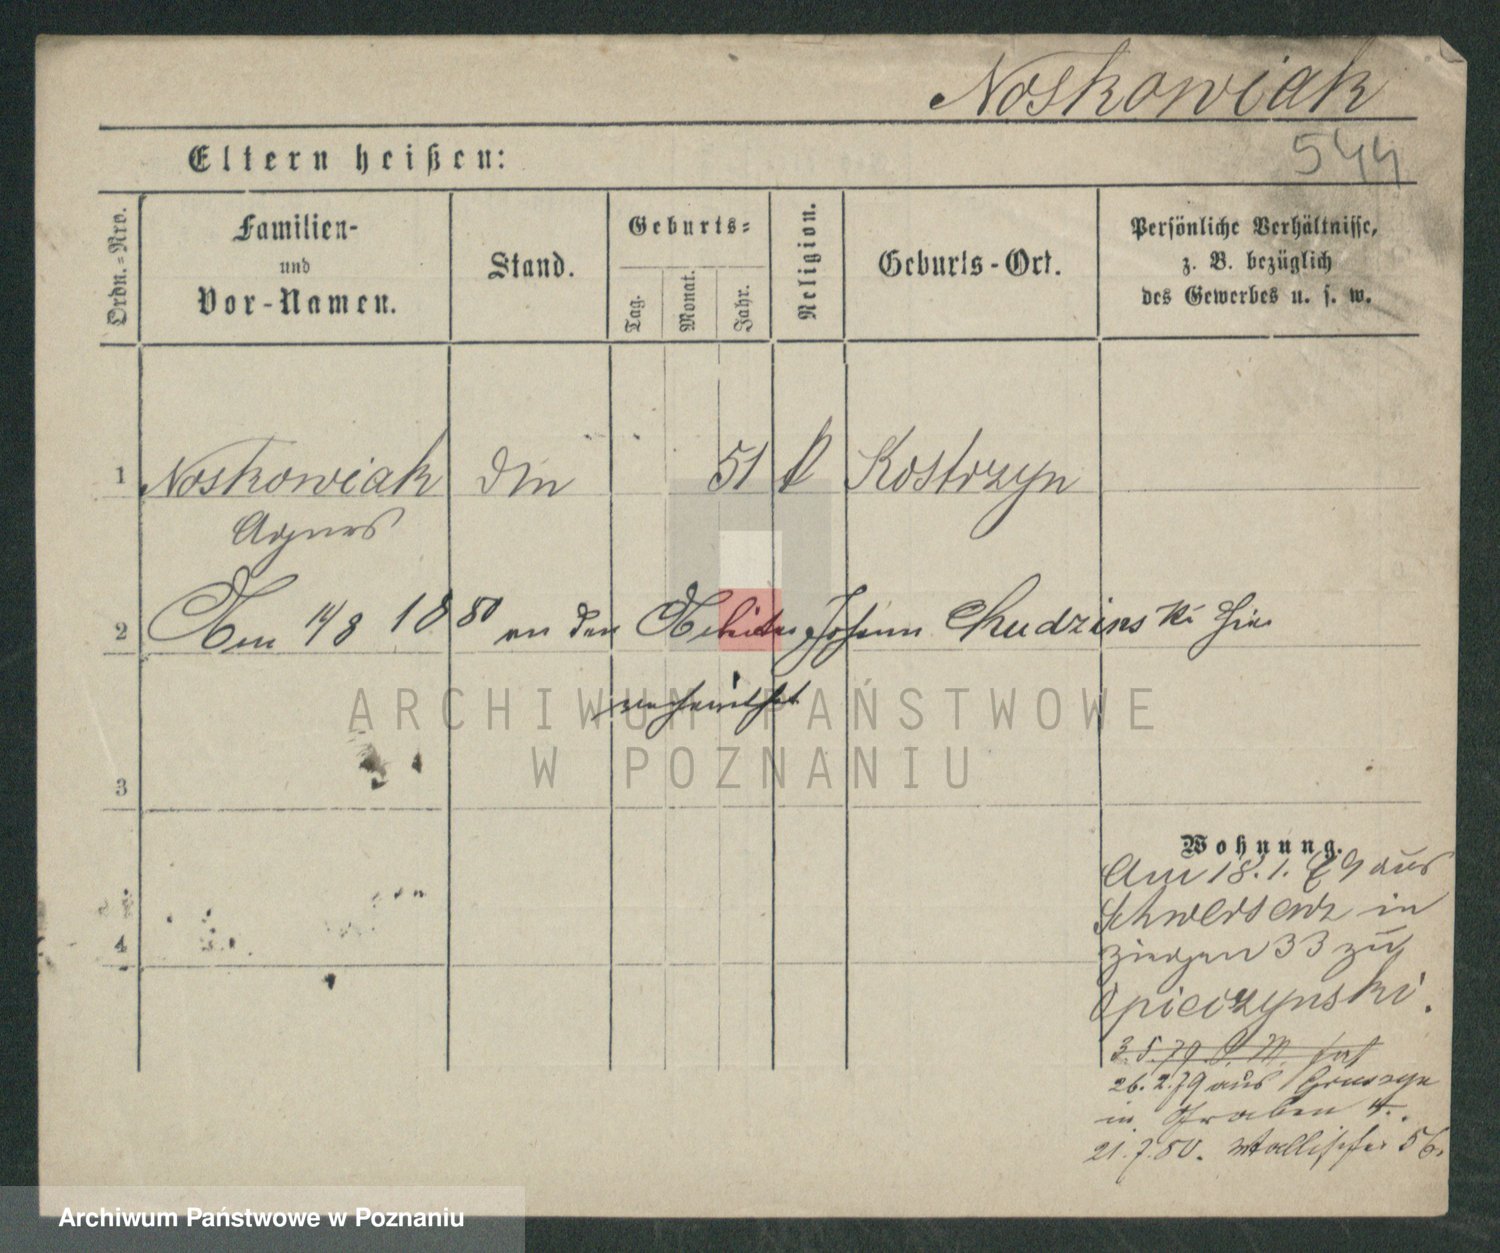 Noskowiak
544
Eltern heißen:
Ordn.=Nro.
Familien-
und
Vor-Namen.
Stand.
Geburts=
Tag.
Monat.
Jahr.
Religion.
Geburts-Ort.
Persönliche Verhältnisse,
z. B. bezüglich
des Gewerbes u. s. w.
1 Noskowiak 51 k Kostrzyn
Agnes
2 Am 14/8 1880 an den Arbeiter Johann Chudzinski hier
verheirathet
ARCHIWUM PAŃSTWOWE
W POZNANIU
3
4
Wohnung.
Am 18.1.79 aus
Schwersenz in
Ziegen 33 zu
Opieczynski.
3.5.79
26.2.79 aus
in Graben 4.
21.7.80. Wallischei 56.
Archiwum Państwowe w Poznaniu